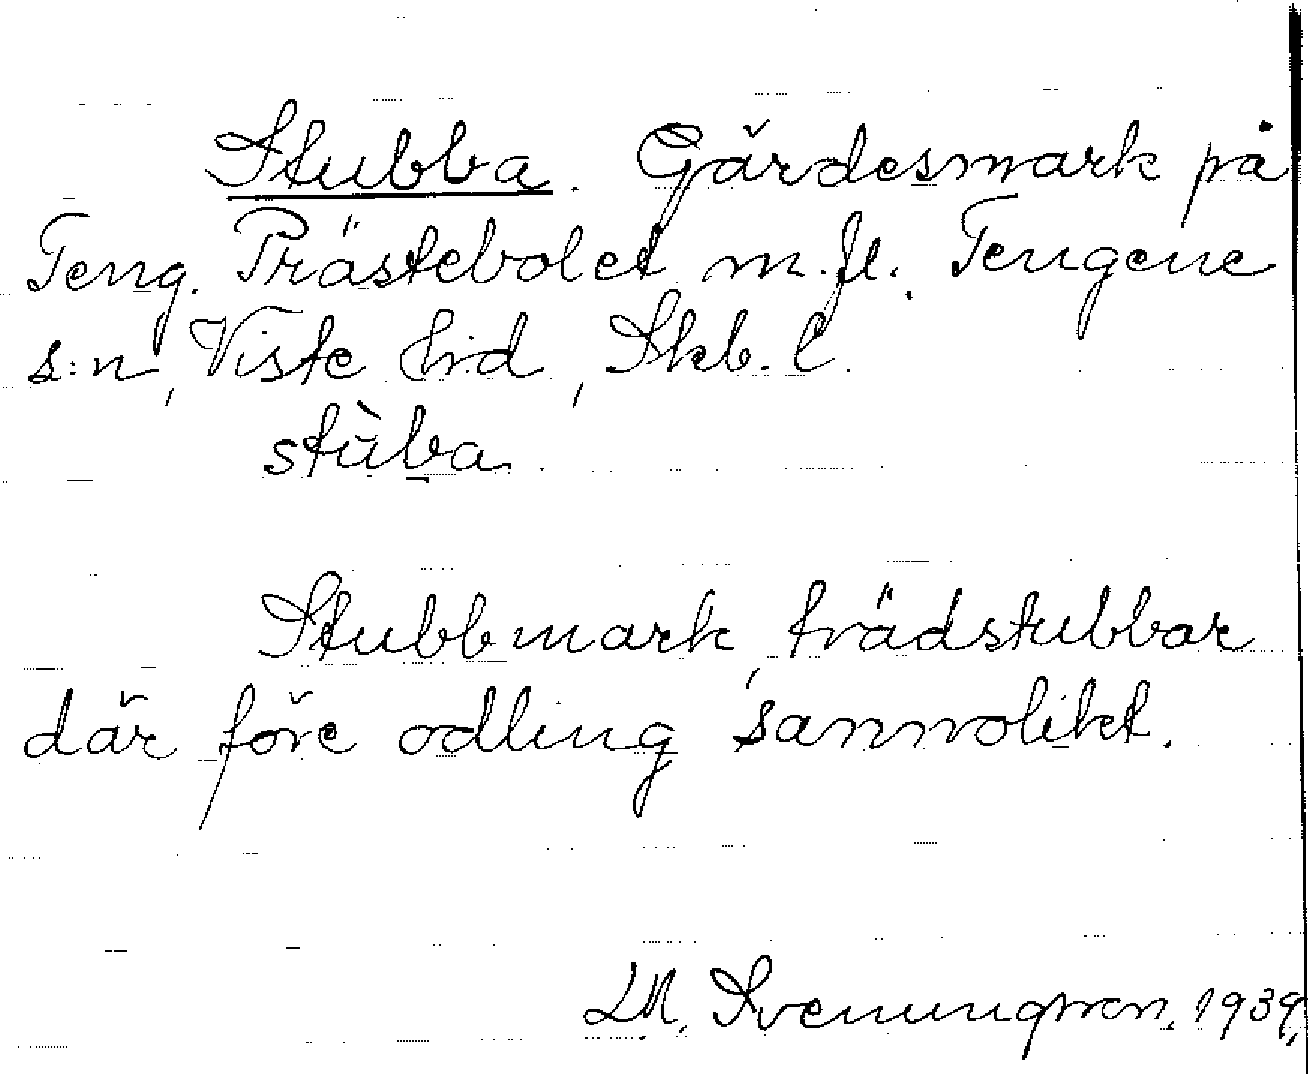 Stubba. Gärdesmark på
Teng. Prästebolet m.fl. Tengene
s:n, Viste hrd, Skb. l.
stùba.
Stubbmark, trädstubbar
där före odling sannolikt.
Svenungsson. 1939,